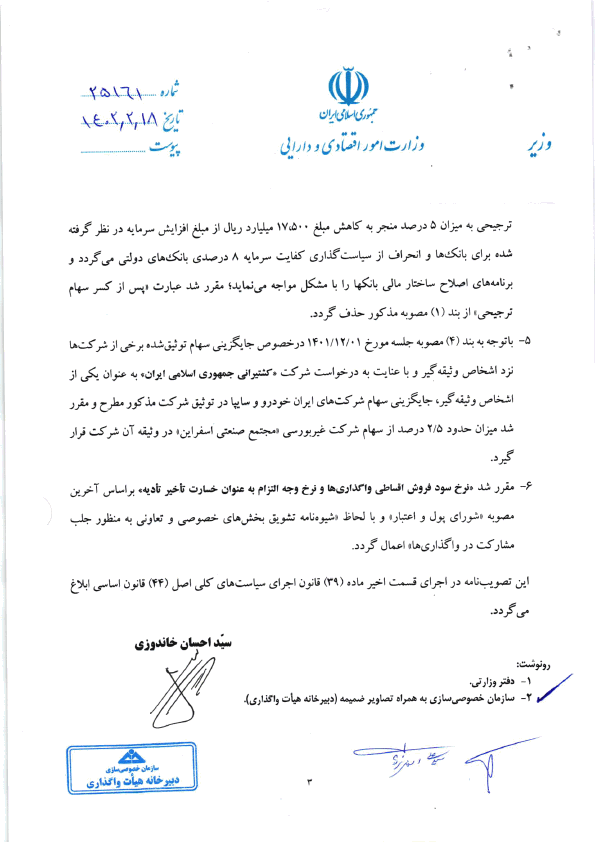 جمهوری اسلامی ایران
وزارت امور اقتصادی و دارایی
وزیر
شماره ۲۵۱۶۱
تاریخ ۱۴۰۲,۲,۱۸
پیوست
ترجیحی به میزان ۵ درصد منجر به کاهش مبلغ ۱۷،۵۰۰ میلیارد ریال از مبلغ افزایش سرمایه در نظر گرفته
شده برای بانک‌ها و انحراف از سیاست‌گذاری کفایت سرمایه ۸ درصدی بانک‌های دولتی می‌گردد و
برنامه‌های اصلاح ساختار مالی بانکها را با مشکل مواجه می‌نماید؛ مقرر شد عبارت «پس از کسر سهام
ترجیحی» از بند (۱) مصوبه مذکور حذف گردد.
۵- باتوجه به بند (۴) مصوبه جلسه مورخ ۱۴۰۱/۱۲/۰۱ درخصوص جایگزینی سهام توثیق‌شده برخی از شرکت‌ها
نزد اشخاص وثیقه‌گیر و با عنایت به درخواست شرکت «کشتیرانی جمهوری اسلامی ایران» به عنوان یکی از
اشخاص وثیقه‌گیر، جایگزینی سهام شرکت‌های ایران خودرو و سایپا در توثیق شرکت مذکور مطرح و مقرر
شد میزان حدود ۲/۵ درصد از سهام شرکت غیربورسی «مجتمع صنعتی اسفراین» در وثیقه آن شرکت قرار
گیرد.
۶- مقرر شد «نرخ سود فروش اقساطی واگذاری‌ها و نرخ وجه التزام به عنوان خسارت تأخیر تأدیه» براساس آخرین
مصوبه «شورای پول و اعتبار» و با لحاظ «شیوه‌نامه تشویق بخش‌های خصوصی و تعاونی به منظور جلب
مشارکت در واگذاری‌ها» اعمال گردد.
این تصویب‌نامه در اجرای قسمت اخیر ماده (۳۹) قانون اجرای سیاست‌های کلی اصل (۴۴) قانون اساسی ابلاغ
می‌گردد.
سیّد احسان خاندوزی
رونوشت:
۱- دفتر وزارتی.
۲- سازمان خصوصی‌سازی به همراه تصاویر ضمیمه (دبیرخانه هیأت واگذاری).
سازمان خصوصی‌سازی
دبیرخانه هیأت واگذاری
۳